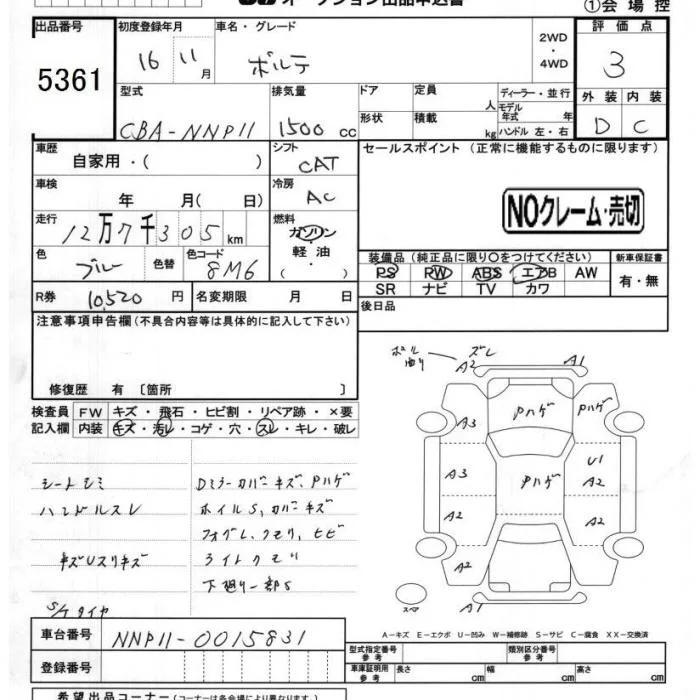 オークション出品申込書
①会場控
出品番号
5361
初度登録年月
16 11月
車名・グレード
ボルテ
2WD
・
4WD
評価点
3
型式
CBA-NNP11
排気量
1500 cc
ドア
形状
定員
人
積載
kg
ディーラー・並行
モデル年式 年
ハンドル 左・右
外装 内装
D C
車歴
自家用・( )
シフト
CAT
セールスポイント(正常に機能するものに限ります)
車検
年 月( 日)
冷房
AC
NOクレーム・売切
走行
12万7千305km
燃料
ガソリン
軽油・
( )
色
ブルー
色替
色コード
8M6
装備品(純正品に限り○をつけてください)
PS PW ABS エアB AW
SR ナビ TV カワ
新車保証書
有・無
R券
10,520円
名変期限 月 日
後日品
注意事項申告欄(不具合内容等は具体的に記入して下さい)
修復歴 有〔箇所 〕
検査員 FW キズ・飛石・ヒビ割・リペア跡・×要
記入欄 内装 キズ・汚レ・コゲ・穴・スレ・キレ・破レ
シートシミ
ハンドルスレ
キズUスリキズ
S/Kタイヤ
Dミラーカバーキズ、Pハゲ
ホイルS,カバーキズ
フォグL、クモリ、ヒビ
ライトクモリ
下廻り一部S
ズレ
A2
A1
A3
Pハゲ
Pハゲ
A3
Pハゲ
U1
A2
A2
A2
A2
A1
スペア
A-キズ E-エクボ U-凹み W-補修跡 S-サビ C-腐食 XX-交換済
車台番号
NNP11-0015831
登録番号
型式指定番号 参考
類別区分番号 参考
車庫証明用 参考
長さ cm
幅 cm
高さ cm
希望出品コーナー(コーナーは各会場により異なります)